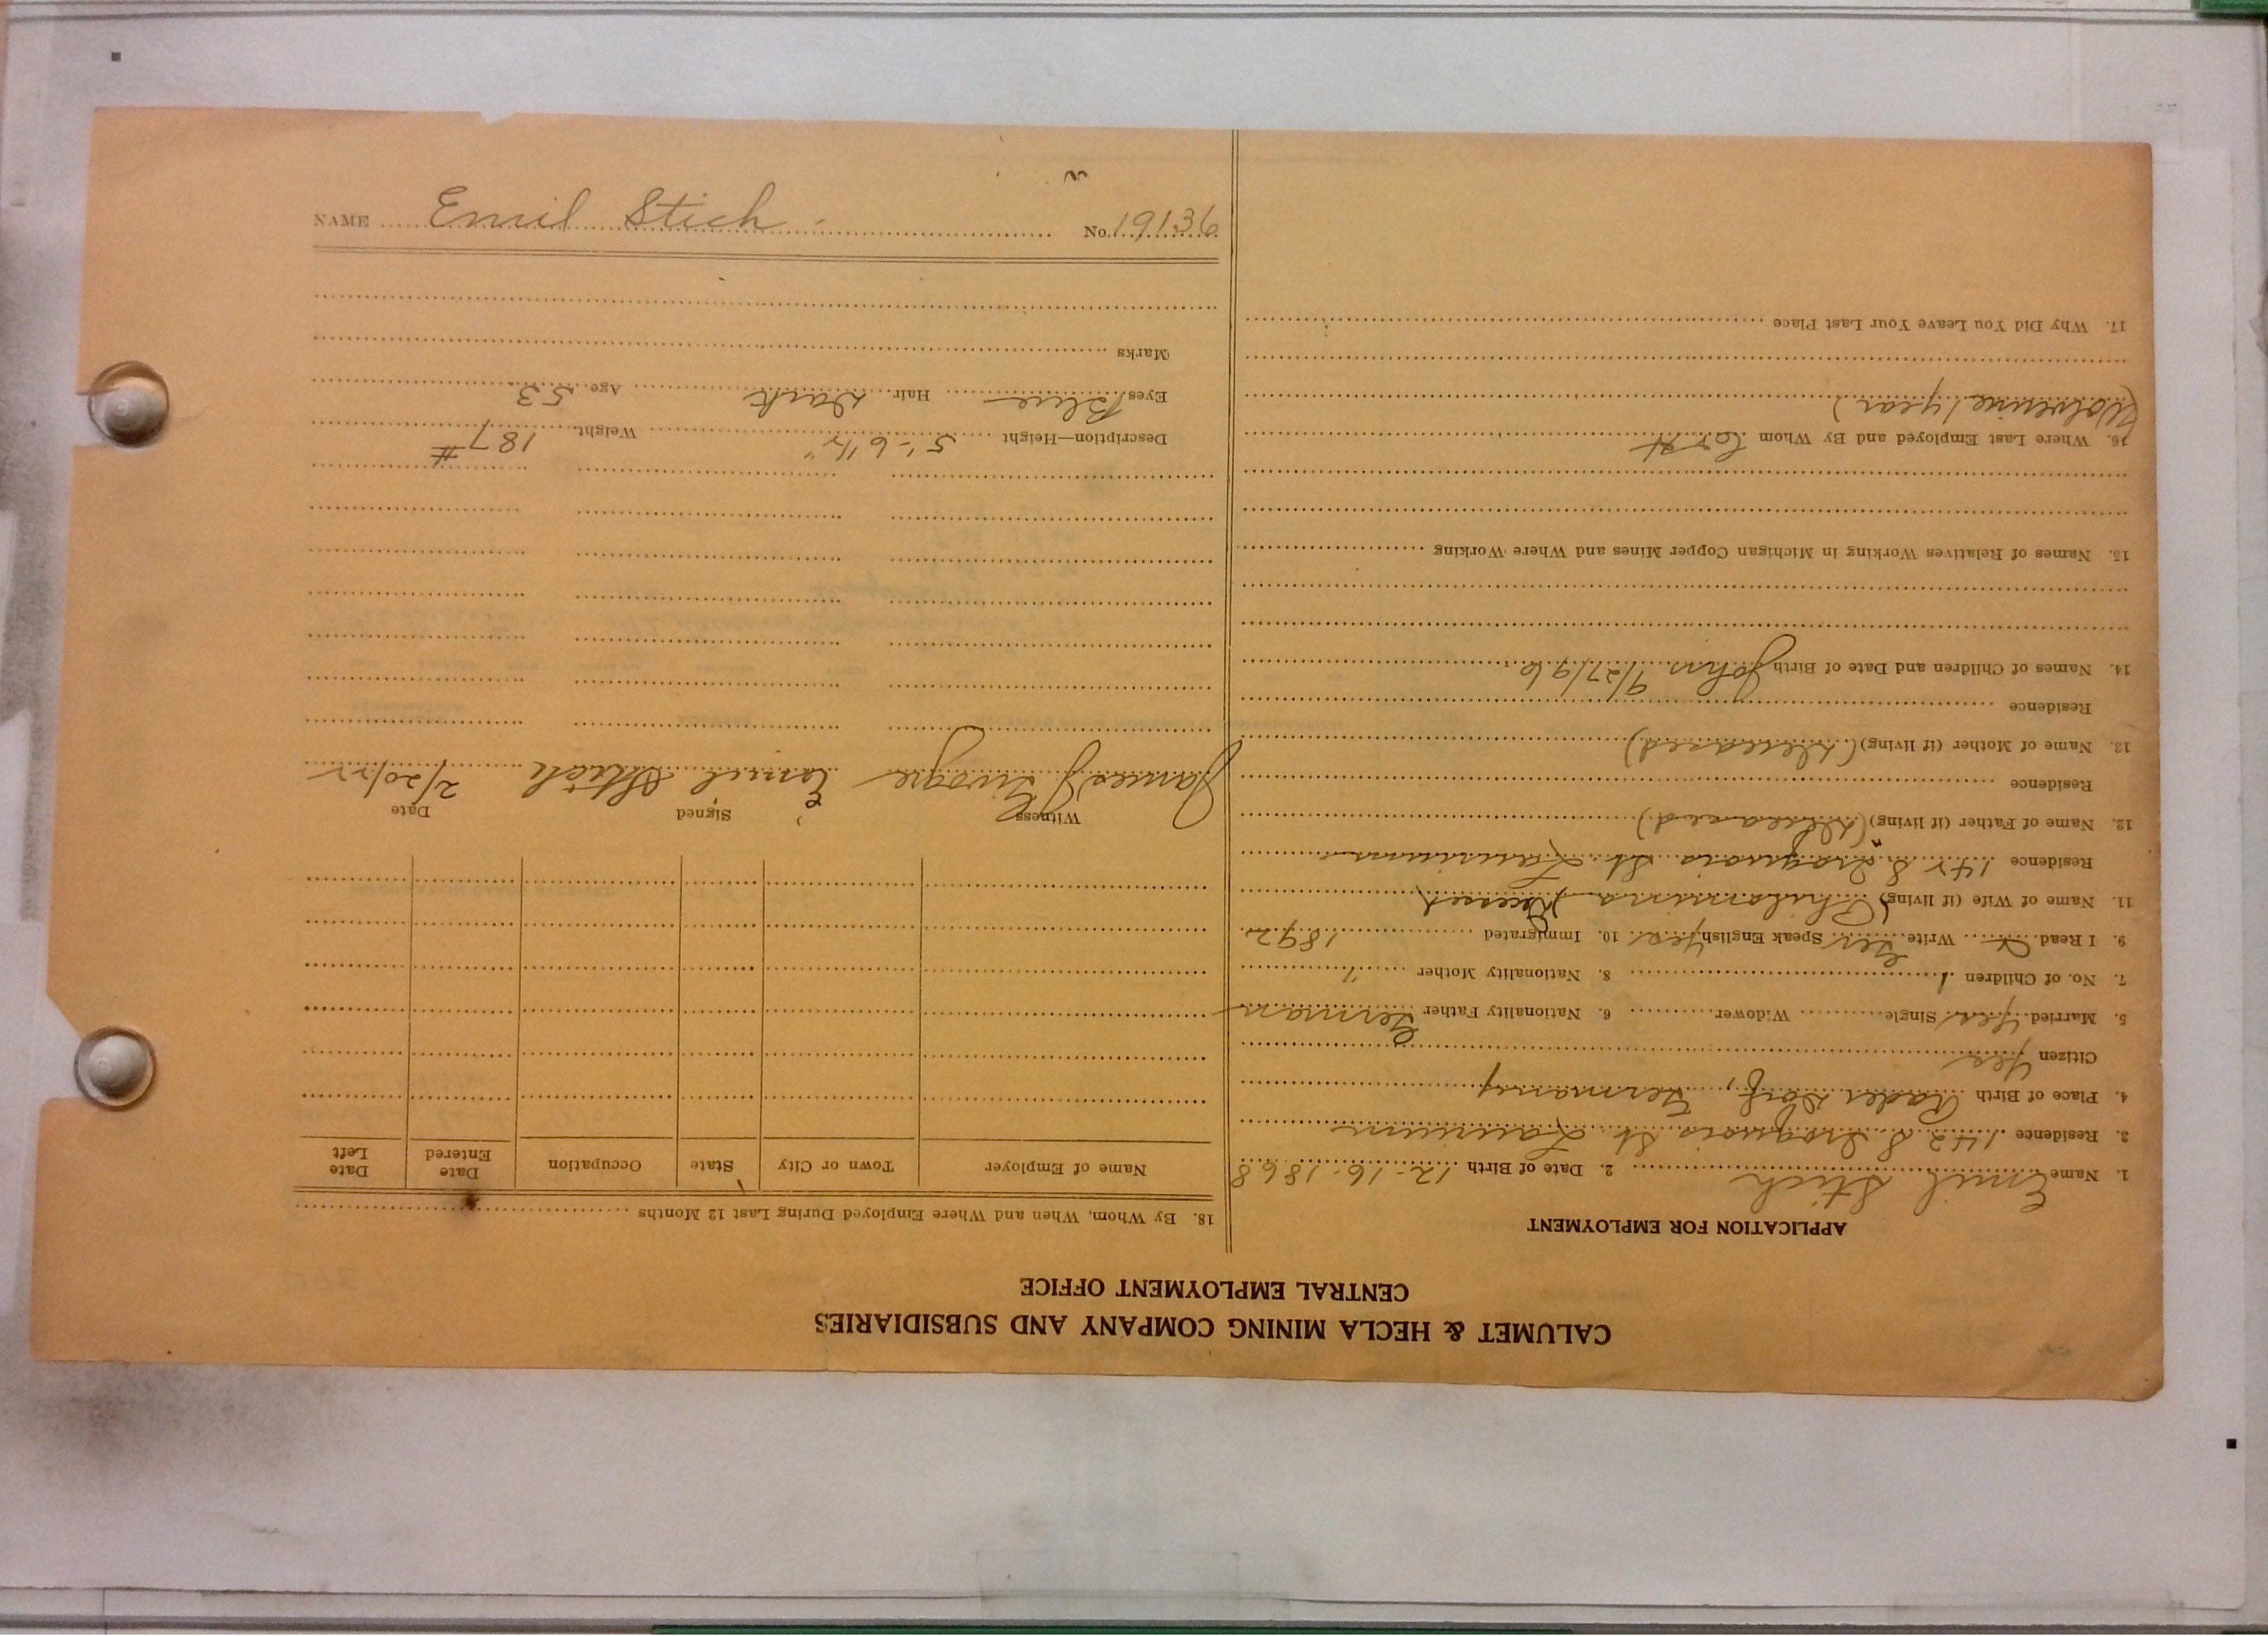 CALUMET & HECLA MINING COMPANY AND SUBSIDIARIES
CENTRAL EMPLOYMENT OFFICE
APPLICATION FOR EMPLOYMENT
1. Name Emil Stich 2. Date of Birth 12-16-1868
3. Residence 142 S Iroquois St. Laurium
4. Place of Birth Germany
Citizen Yes
5. Married Yes Single Widower 6. Nationality Father German
7. No. of Children 1 8. Nationality Mother "
9. I Read Write Ger Speak English Yes 10. Immigrated 1892
11. Name of Wife (if living) (Deceased)
Residence 142 S. Iroquois St. Laurium
12. Name of Father (if living) (deceased)
Residence
13. Name of Mother (if living) (deceased)
Residence
14. Names of Children and Date of Birth John 9/27/96
15. Names of Relatives Working in Michigan Copper Mines and Where Working
16. Where Last Employed and By Whom
(Wolverine 1 year)
17. Why Did You Leave Your Last Place
18. By Whom, When and Where Employed During Last 12 Months
Name of Employer Town or City State Occupation Date Entered Date Left
Witness Signed Date
James J Emil Stich 2/20/22
Description—Height 5'-6 1/2" Weight 187 #
Eyes Blue Hair Dark Age 53
Marks
NAME Emil Stich No. 19136